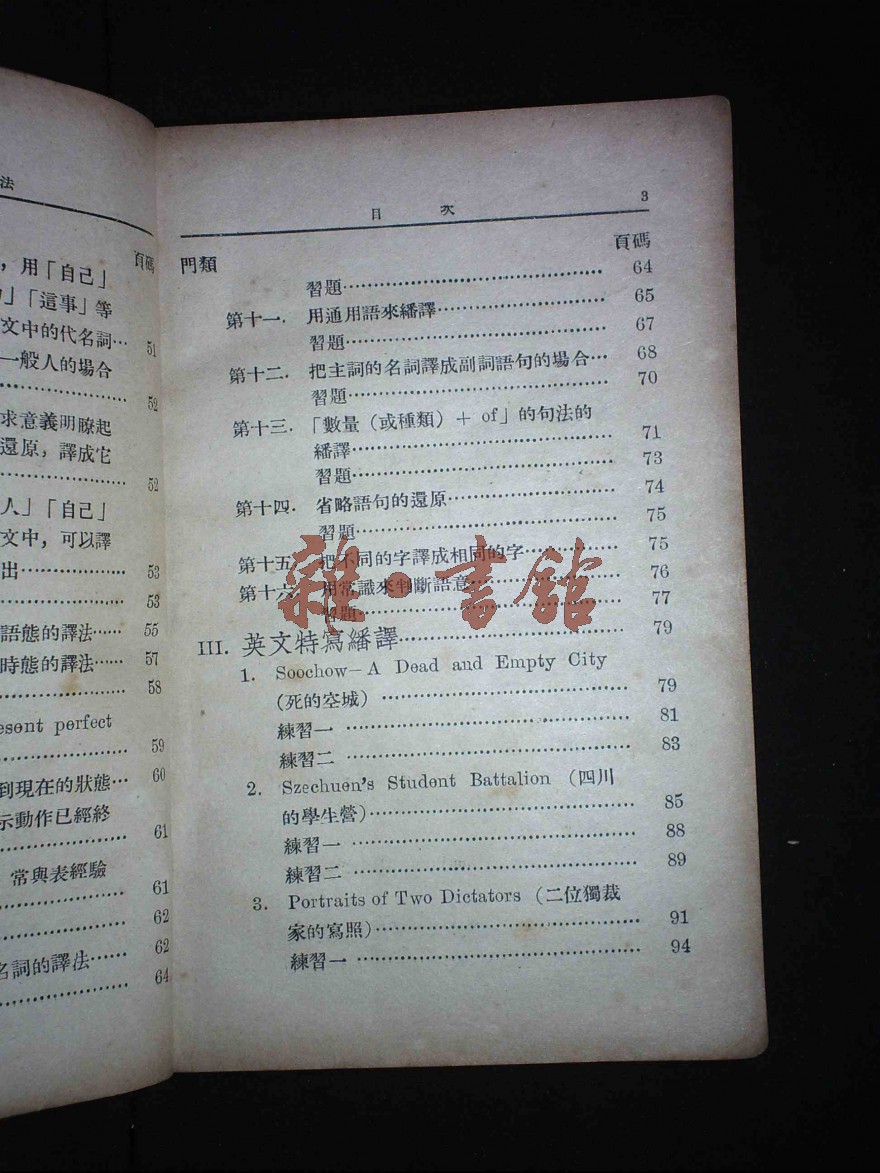 法
頁碼
，用「自己」
」「這事」等
文中的代名詞… 51
一般人的場合
………… 52
求意義明瞭起
還原，譯成它
………… 52
人」「自己」
文中，可以譯
出………… 53
………… 53
語態的譯法…… 55
時態的譯法…… 57
………… 58
esent perfect
………… 59
到現在的狀態… 60
示動作已經終
………… 61
常與表經驗
………… 61
………… 62
名詞的譯法…… 62
………… 64
目 次 3
門類 頁碼
習題………… 64
第十一． 用通用語來繙譯………… 65
習題………… 67
第十二． 把主詞的名詞譯成副詞語句的場合… 68
習題………… 70
第十三． 「數量（或種類）＋ of」的句法的
繙譯………… 71
習題………… 73
第十四． 省略語句的還原………… 74
習題………… 75
第十五． 把不同的字譯成相同的字………… 75
第十六． 用常識來判斷語意………… 76
習題………… 77
III. 英文特寫繙譯………… 79
1. Soochow—A Dead and Empty City
(死的空城) ………… 79
練習一 ………… 81
練習二 ………… 83
2. Szechuen's Student Battalion (四川
的學生營)………… 85
練習一 ………… 88
練習二 ………… 89
3. Portraits of Two Dictators (二位獨裁
家的寫照)………… 91
練習一 ………… 94
雜·書館